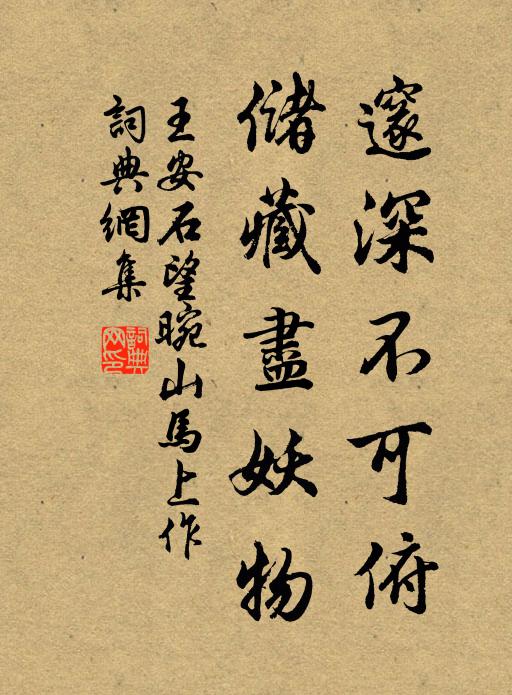 邃深不可俯
儲藏盡妖物
王安石望晥山馬上作
詞典網集
詞典网印